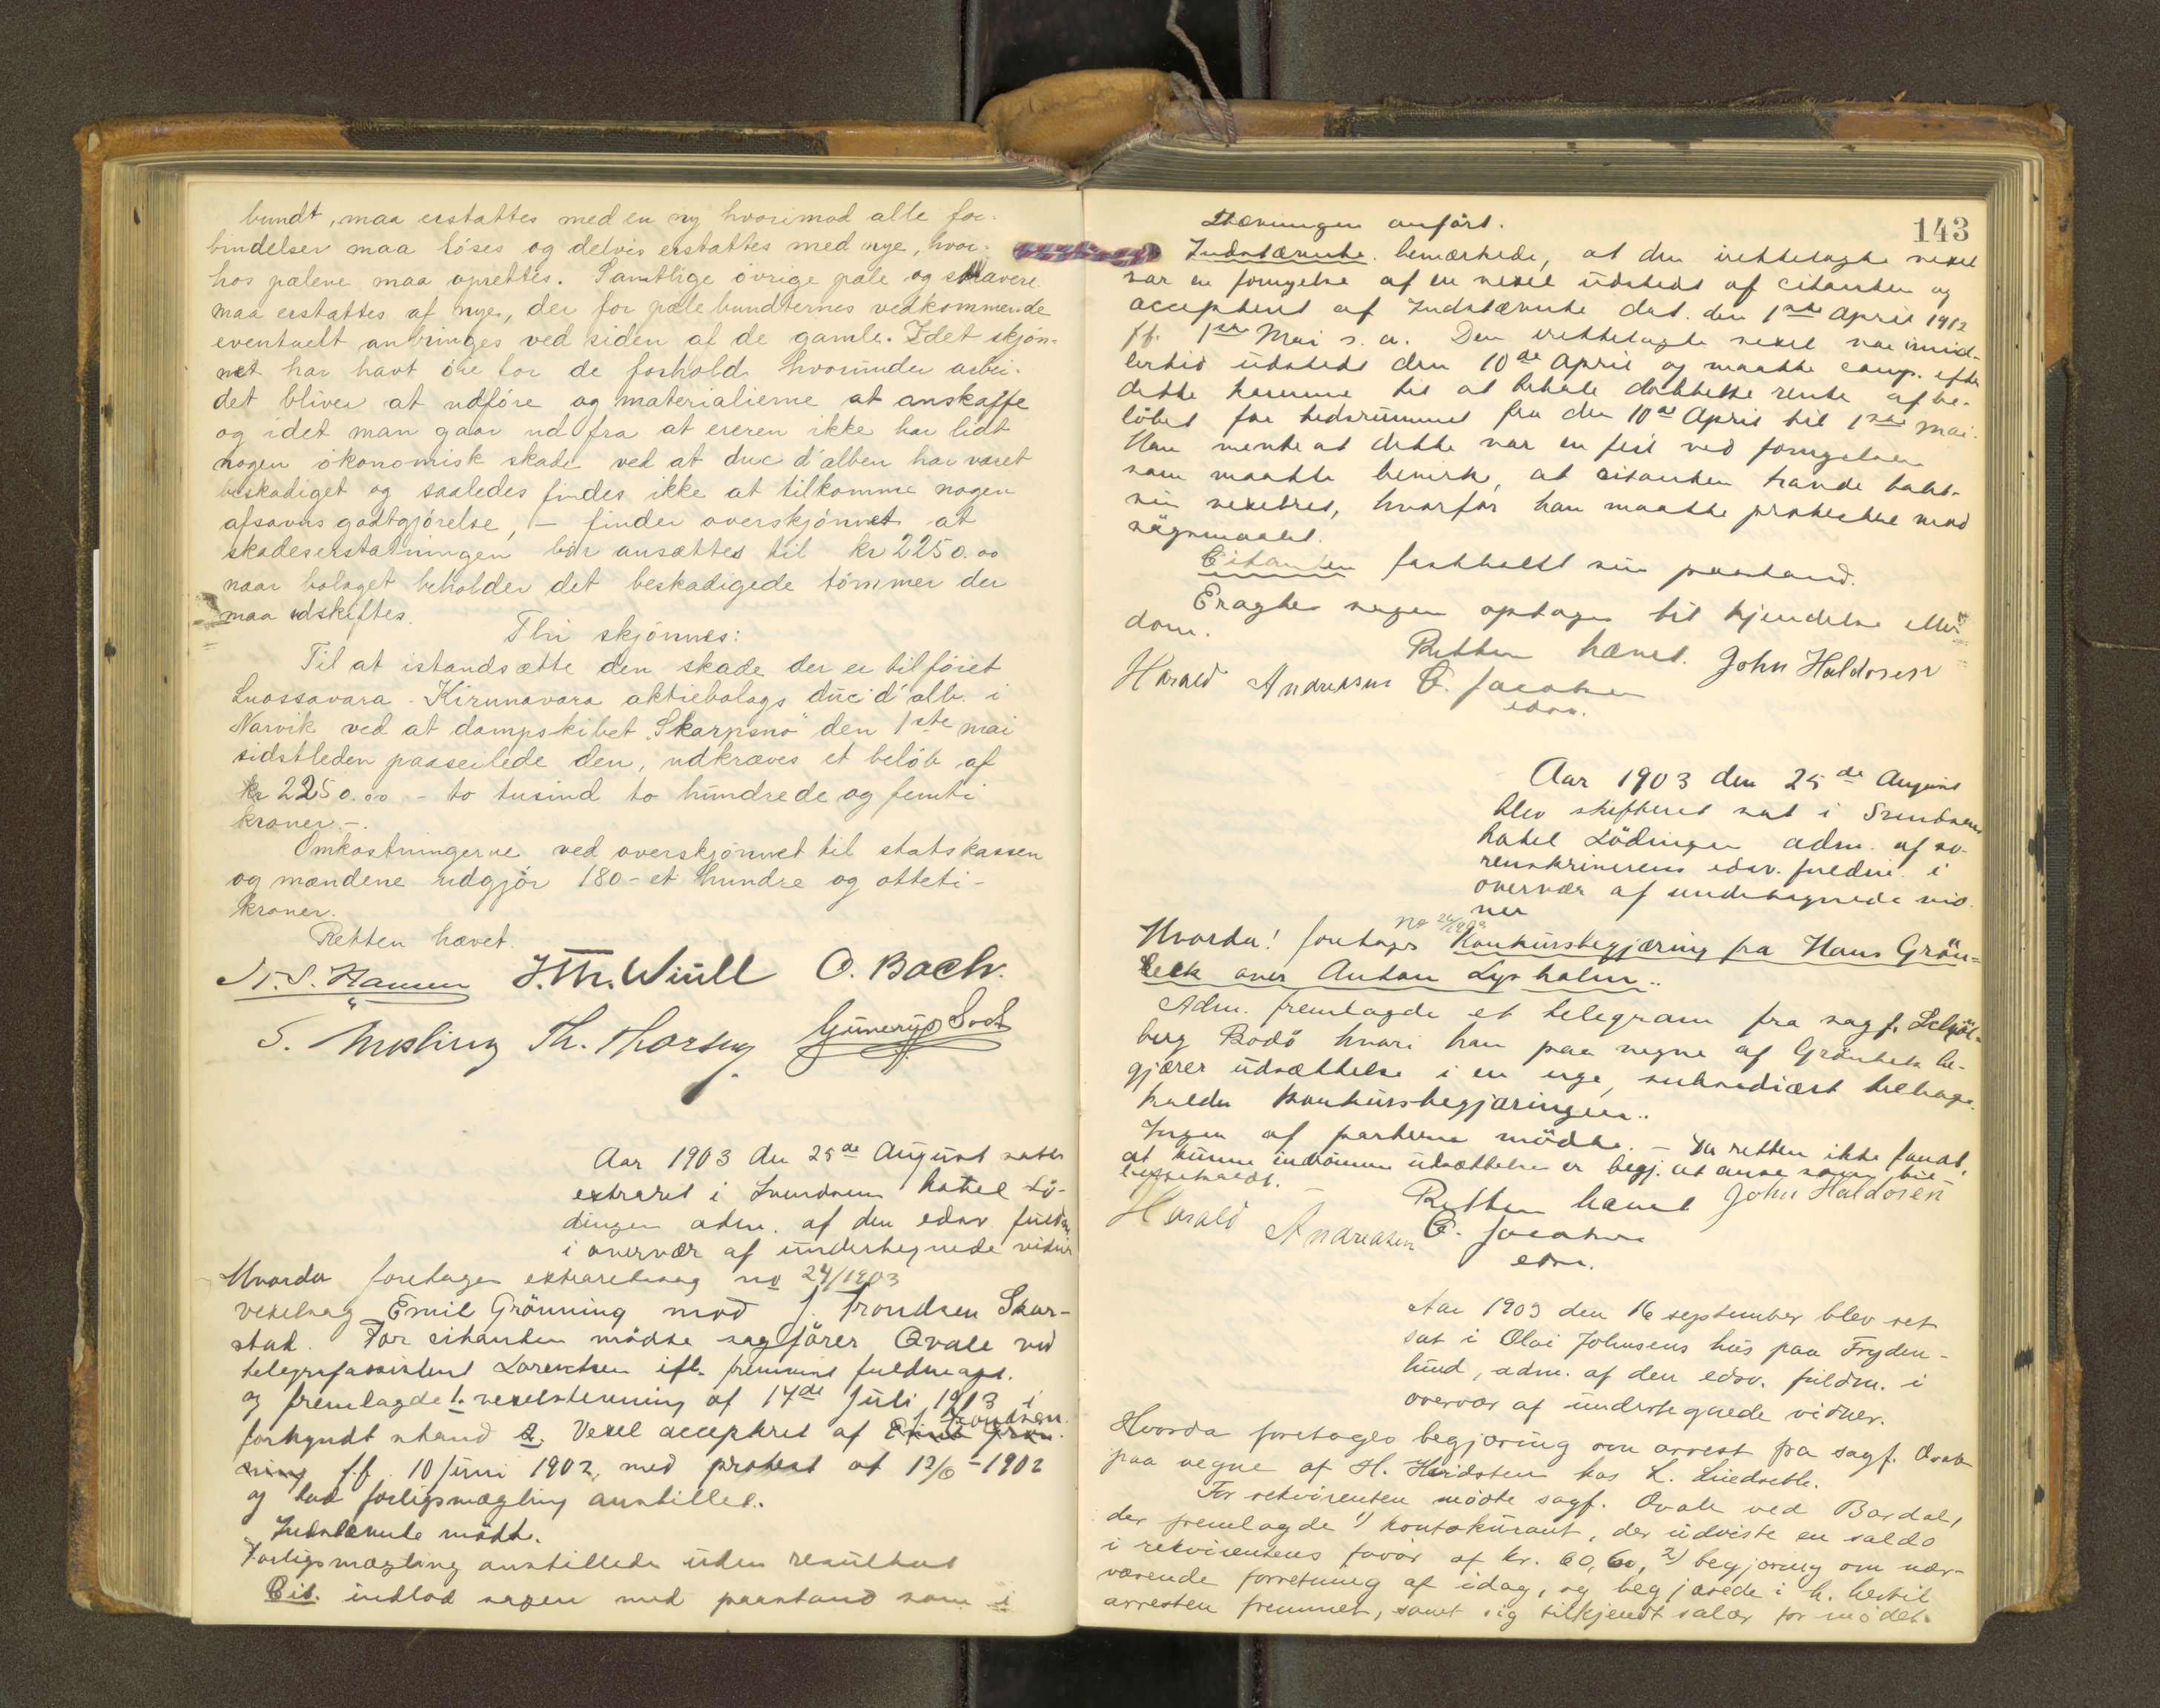 bundt, maa erstattes med en ny hvorimod alle for-
bindelser maa löses og delvis erstattes med nye, hvor-
hos pælene maa oprettes. Samtlige övrige pæle og
maa erstattes af nye, der for pælebundternes vedkommende
eventuelt anbringes ved siden af de gamle. Idet skjön-
net har havt öie for de forhold hvorunder arbei-
det bliver at udföre og materialierne at anskaffe
og idet man gaar ud fra at eieren ikke har lidt
nogen ökonomisk skade ved at duc d'alben har været
beskadiget og saaledes findes ikke at tilkomme nogen
afsavns godtgjörelse, – finder overskjönnet at
skadeserstatningen bör ansættes til kr 2250.00
naar bolaget beholder det beskadigede tömmer der
maa udskiftes.
Thi skjönnes:
Til at istandsætte den skade der er tilföiet
Luossavara - Kirunavara aktiebolags duc d'alb. i
Narvik ved at dampskibet "Skarpsno" den 1ste mai
sidstleden paaseilede den, udkræves et belöb af
kr 2250.00 - to tusind to hundrede og femti
kroner -.
Omkostningerne ved overskjönnet til statskassen
og mændene udgjör 180 - et hundre og otteti -
kroner.
Retten hævet.
N. S. Hansen J. Th. Wiull O. Bach.
S. Th. Thorsen
Aar 1903 den 25de August sattes
extraret i Svendsens hotel Lö-
dingen adm. af den edsv. fuldm.
i overvær af undertegnede vidner
Hvorda foretages extraretssag no 24/1903
vexelsag Emil Grönning mod J. Trondsen Skar-
stad. For citanten mödte sagförer Qvale ved
telegrafassistent Lorentsen ifl. fuldmagt.
og fremlagde 1. vexelstevning af 14de Juli 1903 i
J. Trondsen.
forkyndt stand 2. Vexel accepteret af Emil Grön-
ning f.f. 10 Juni 1902, med protest af 12/6 - 1902
og lod forligsmægling anstilles.
Indstævnte mödte.
Forligsmægling anstilledes uden resultat
Cit. indlod sagen med paastand som i
143
Stævningen anfört.
Indstævnte bemærkede, at den irettelagte vexel
var en fornyelse af en vexel udstedt af citanten og
accepteret af Indstævnte dat. den 1ste April 1902
ff. 1ste Mai s. a. Den irettelagte vexel var imid-
lertid udstedt den 10de April og maatte comp. efter
dette komme til at betale dobbelte rente af be-
löbet for tidsrummet fra den 10de April til 1ste Mai.
Han mente at dette var en feil ved fornyelsen
som maatte bevirke, at citanten havde tabt
sin vexelret, hvorfor han maatte protestere mod
sögsmaalet.
Citanten fastholdt sin paastand.
Eragtes sagen optages til kjendelse eller
dom.
Retten hævet. John Haldorsen
Harald Andreasen O. Jacobsen
edsv.
Aar 1903 den 25de August
blev skifteret sat i Svendsens
hotel Lödingen adm. af so-
renskriverens edsv. fuldm. i
overvær af undertegnede vid-
ner
Hvorda! foretages Konkursbegjæring fra Hans Grön-
beck over Anton Lysholm..
Adm. fremlagde et telegram fra sagf.
berg Bodö hvori han paa vegne af Grönbeck be-
gjærer udsættelse i en uge, subsidiært tilbage-
kalder konkursbegjæringen..
Ingen af parterne mödte. - Da retten ikke fandt
at kunne indrömme udsættelsen er begj. at anse som til-
bagekaldt.
Retten hævet John Haldorsen
Harald Andreasen O. Jacobsen
edsv.
Aar 1903 den 16 september blev ret
sat i Olai Johnsens hus paa Fryden-
lund, adm. af den edsv. fuldm. i
overvær af undertegnede vidner.
Hvorda foretoges begjæring om arrest fra sagf. Qvale
paa vegne af H. Hvidsten hos L.
For rekvirenten mödte sagf. Qvale ved Bardal,
der fremlagde 1) kontokurant, der udviste en saldo
i rekvirentens favör af kr. 60,60, 2) begjæring om nær-
værende forretning af idag, og begjærede i h. hertil
arresten fremmet, samt sig tilkjendt salær for mödet.